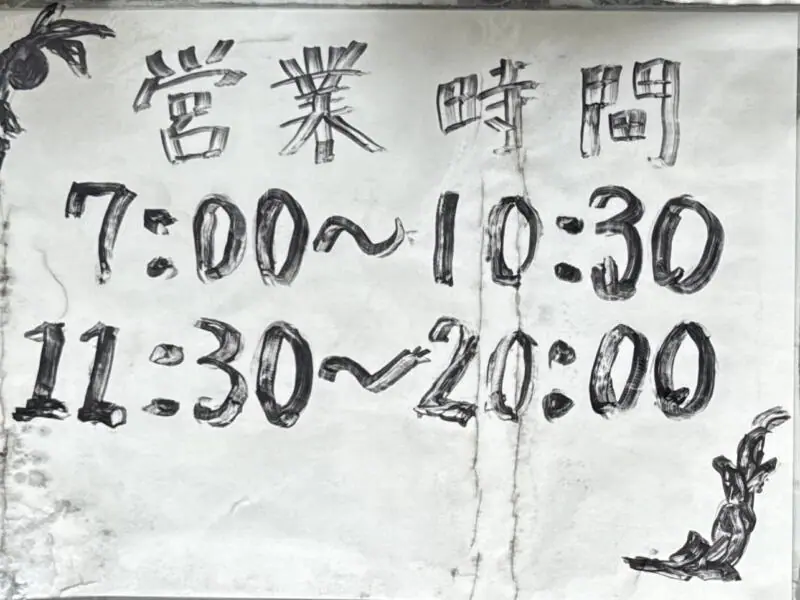 営業時間
7:00~10:30
11:30~20:00